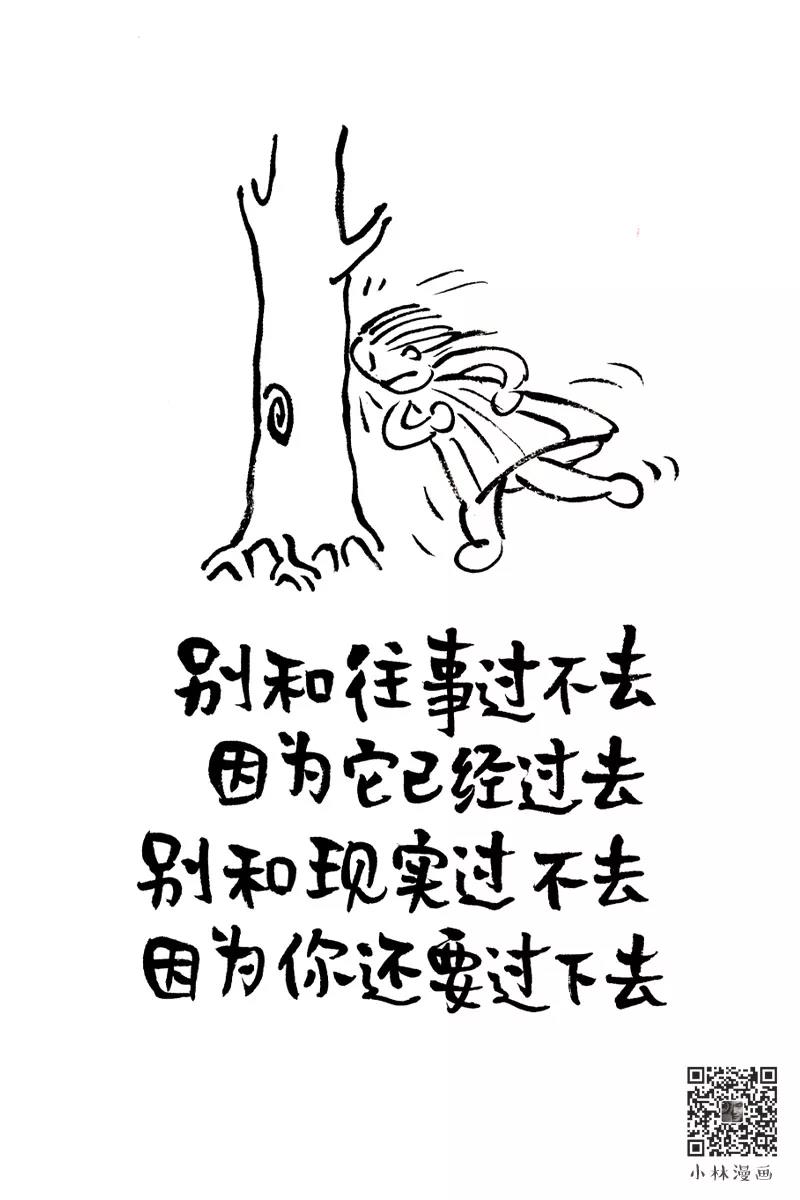 别和往事过不去
因为它已经过去
别和现实过不去
因为你还要过下去
小林漫画